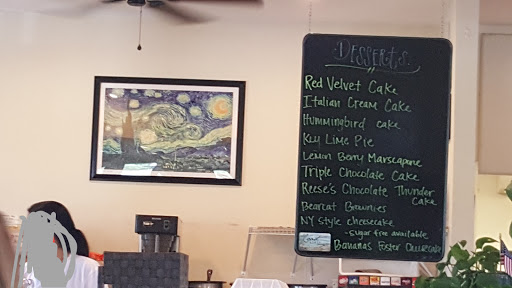 DESSERTS
Red Velvet Cake
Italian Cream Cake
Hummingbird cake
Key Lime Pie
Lemon Berry Marscapone
Triple Chocolate Cake
Reese's Chocolate Thunder
Cake
Bearcat Brownies
NY Style cheesecake
-sugar free available
Bananas Foster Cheesecake